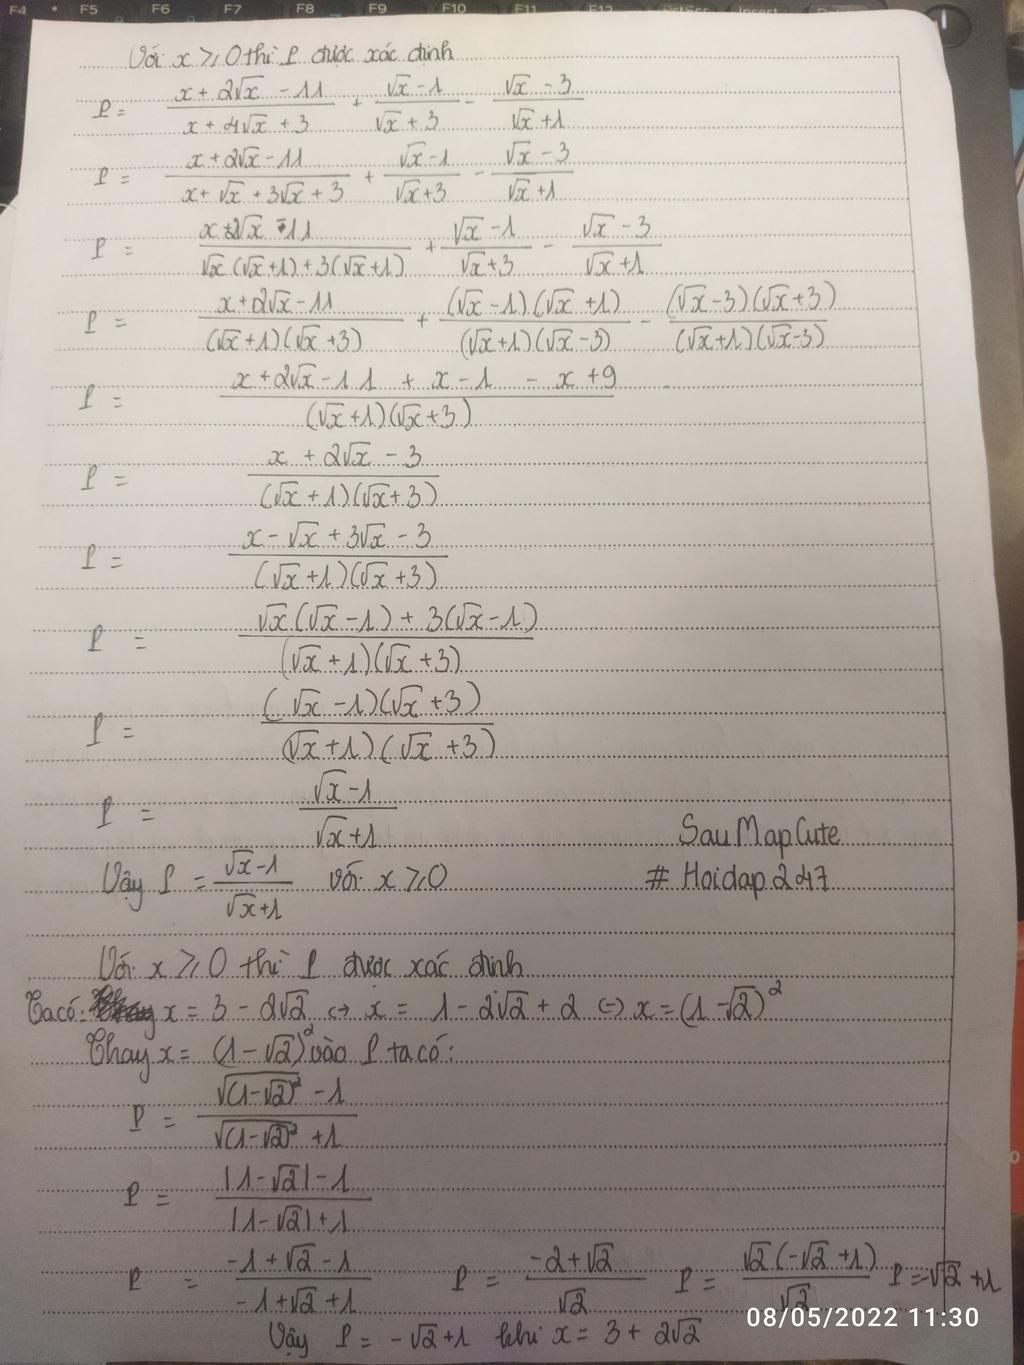 F4 F5 F6 F7 F8 F9 F10 F11 F12 PrtScr Insert
Với x ⩾ 0 thì P được xác định
P = (x + 2√x - 11)/(x + 4√x + 3) + (√x - 1)/(√x + 3) - (√x - 3)/(√x + 1)
P = (x + 2√x - 11)/(x + √x + 3√x + 3) + (√x - 1)/(√x + 3) - (√x - 3)/(√x + 1)
P = (x + 2√x - 11)/(√x(√x + 1) + 3(√x + 1)) + (√x - 1)/(√x + 3) - (√x - 3)/(√x + 1)
P = (x + 2√x - 11)/((√x + 1)(√x + 3)) + ((√x - 1)(√x + 1))/((√x + 1)(√x - 3)) - ((√x - 3)(√x + 3))/((√x + 1)(√x - 3))
P = (x + 2√x - 11 + x - 1 - x + 9)/((√x + 1)(√x + 3))
P = (x + 2√x - 3)/((√x + 1)(√x + 3))
P = (x - √x + 3√x - 3)/((√x + 1)(√x + 3))
P = (√x(√x - 1) + 3(√x - 1))/((√x + 1)(√x + 3))
P = ((√x - 1)(√x + 3))/((√x + 1)(√x + 3))
P = (√x - 1)/(√x + 1)
SauMapCute
Vậy P = (√x - 1)/(√x + 1) với x ⩾ 0
# Hoidap247
Với x ⩾ 0 thì P được xác định
Ta có: x = 3 - 2√2 ⇔ x = 1 - 2√2 + 2 ⇔ x = (1 - √2)²
Thay x = (1 - √2)² vào P ta có:
P = (√(1 - √2)² - 1)/(√(1 - √2)² + 1)
P = (|1 - √2| - 1)/(|1 - √2| + 1)
P = (-1 + √2 - 1)/(-1 + √2 + 1) P = (-2 + √2)/√2 P = (√2(-√2 + 1))/√2 P = -√2 + 1
08/05/2022 11:30
Vậy P = -√2 + 1 khi x = 3 + 2√2